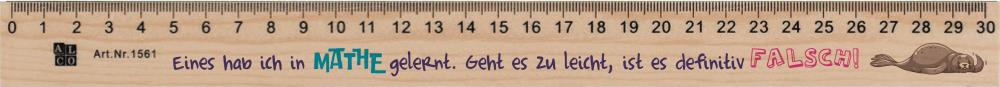 0 1 2 3 4 5 6 7 8 9 10 11 12 13 14 15 16 17 18 19 20 21 22 23 24 25 26 27 28 29 30
ALCO Art.Nr.1561 Eines hab ich in MATHE gelernt. Geht es zu leicht, ist es definitiv FALSCH!